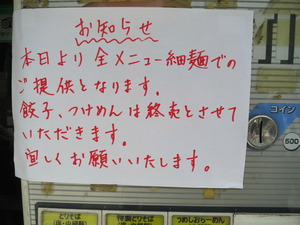 お知らせ
本日より全メニュー細麺での
ご提供となります。
餃子、つけめんは終売とさせて
いただきます。
宜しくお願いいたします。
コイン
500
とりそば
特製とりそば
つめしおらーめん